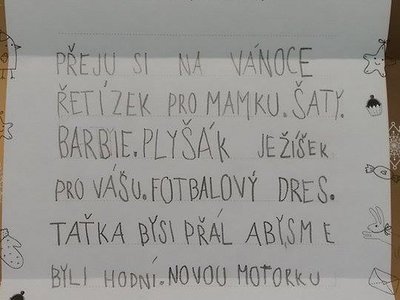 PŘEJU SI NA VÁNOCE
ŘETÍZEK PRO MAMKU. ŠATY.
BARBIE. PLYŠÁK JEŽÍŠEK
PRO VÁŠU. FOTBALOVÝ DRES.
TAŤKA BYSI PŘÁL ABYSME
BYLI HODNÍ. NOVOU MOTORKU